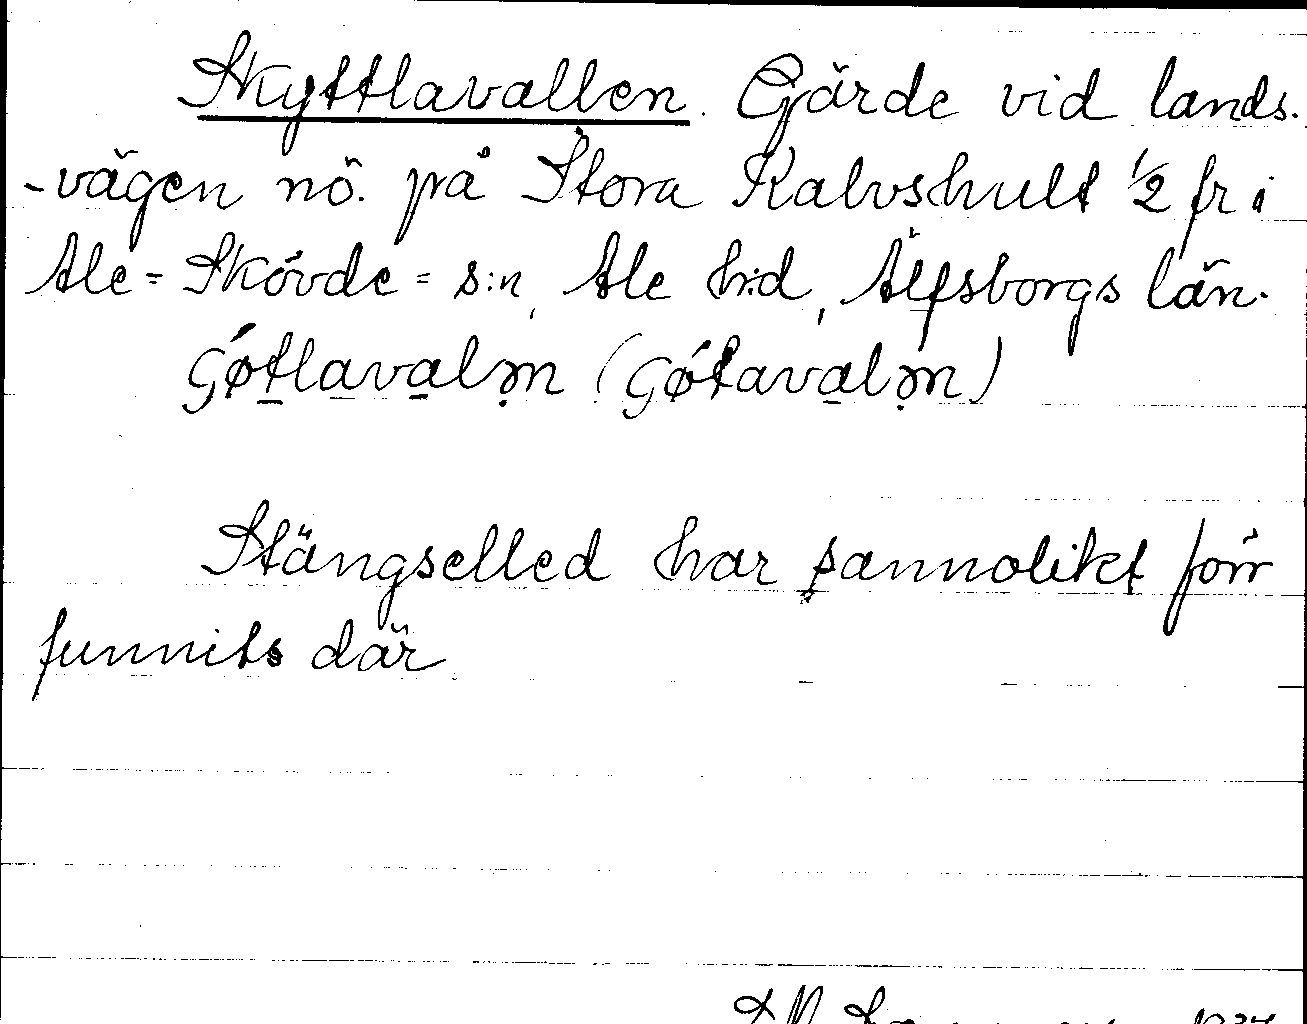 Skyttlavallen. Gärde vid lands-
-vägen nö. på Stora Kalvshult ½ fr i
Ale=Skövde=s:n, Ale h:d, Älfsborgs län.
(
)
Stängselled har sannolikt förr
funnits där